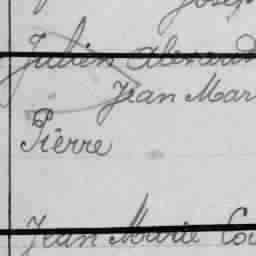 Josep
Julien Alexand
Jean Mar
Pierre
Jean Marie Co